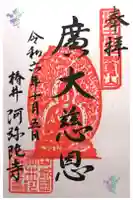 奉拝
廣大慈恩
令和六年一月三日
橋井 阿弥陀寺